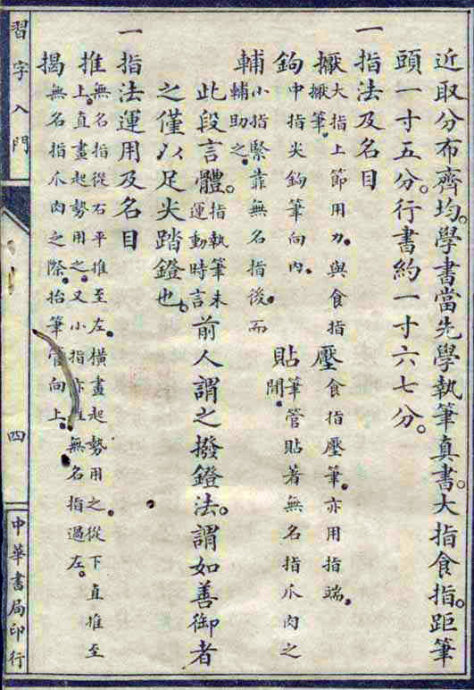 近取分布齊均。學書當先學執筆真書。大指食指。距筆
頭一寸五分。行書約一寸六七分。
一 指法及名目
擫 大指上節用力。與食指
擫筆。
壓 食指壓筆。亦用指端。
鉤 中指尖鉤筆向內。
貼 筆管貼著無名指爪肉之
間。
輔 小指緊靠無名指後。而
輔助之。
此段言體。指執筆未
運動時言
前人謂之撥鐙法。謂如善御者
之僅以足尖踏鐙也。
一 指法運用及名目
推 無名指從右平推至左。橫畫起勢用之。從下直推至
上。直畫起勢用之。又小指無名指過左。
揭 無名指爪肉之際。抬筆管向上。
習字入門
四
中華書局印行